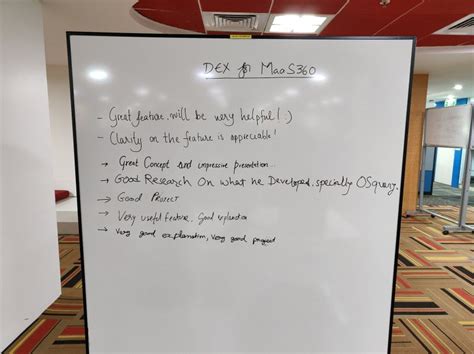 DEX for MaaS360
- Great feature, will be very helpful! :)
- Clarity on the feature is appreciable!
→ Great Concept and impressive presentation..
→ Good Research On what he Developed, specially OSquery.
→ Good Project
→ Very useful feature, Good explanation
→ Very good explanation, Very good project